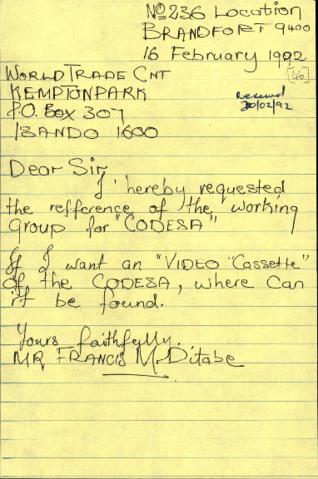 No 236 Location
BRANDFORT 9400
16 February 1992
[46]
WORLD TRADE CNT
KEMPTONPARK
P.O. Box 307
ISANDO 1600
Received
20/02/92
Dear Sir
I hereby requested
the refference of the working
group for "CODESA"
If I want an "VIDEO "Cassette"
of the CODESA, where can
it be found.
Yours faithfully.
MR FRANCIS M. Ditabe